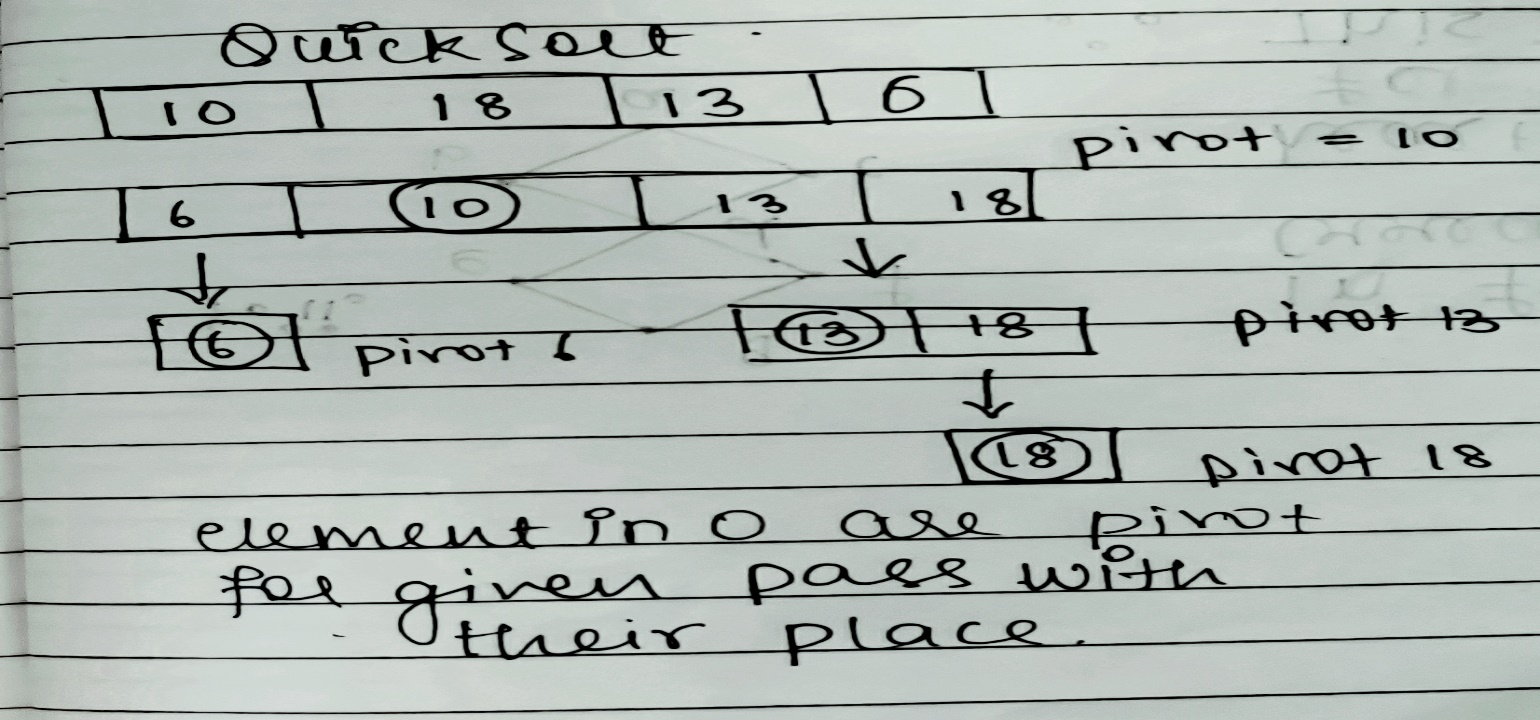 Quick Sort
10 18 13 6
pivot = 10
6 10 13 18
6 pivot 6 13 18 pivot 13
18 pivot 18
element in O are pivot
for given pass with
their place.